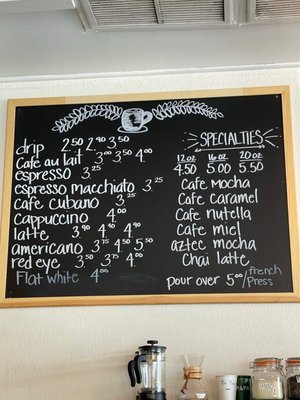 drip 2.50 2.90 3.50
Cafe au lait 3.00 3.50 4.00
espresso 3.25
espresso macchiato 3.25
cafe cubano 3.25
cappuccino 4.00
latte 3.90 4.40 4.90
americano 3.75 4.50 5.50
red eye 3.50 3.75 4.00
Flat white 4.00
SPECIALTIES
12 oz 16 oz 20 oz
4.50 5.00 5.50
Cafe Mocha
Cafe Caramel
Cafe Nutella
Cafe miel
aztec mocha
Chai latte
pour over 5.00/french Press